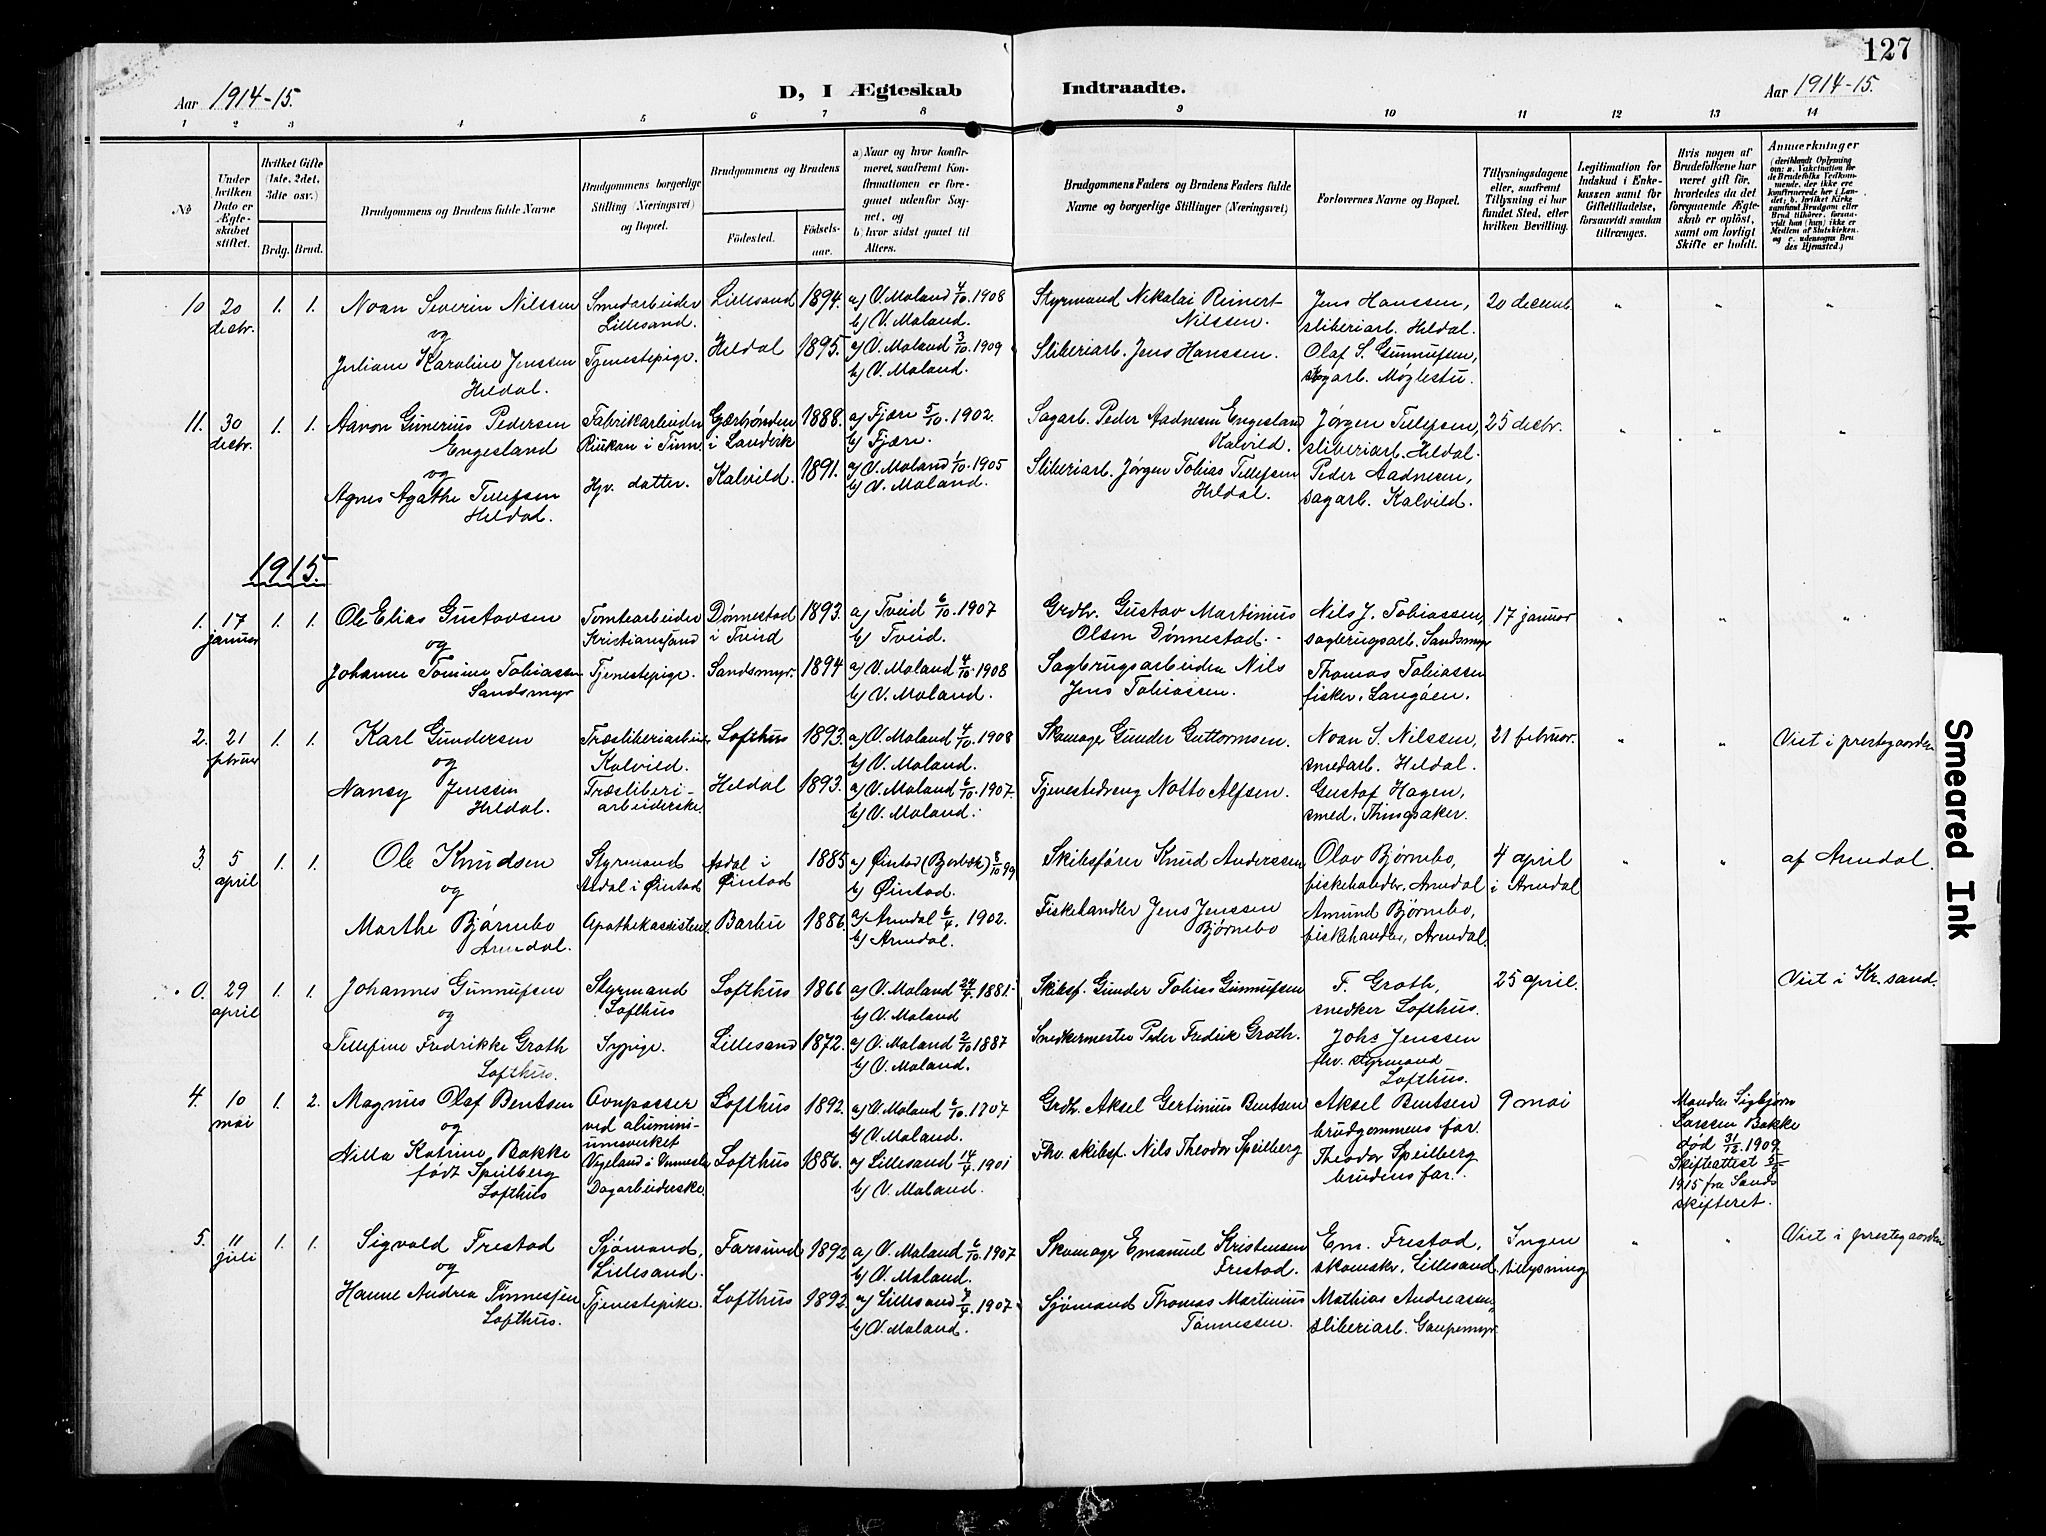 127
Aar 1914-15.
D, I Ægteskab Indtraadte.
Aar 1914-15.
1 2 3 4 5 6 7 8 9 10 11 12 13 14
No
Under hvilken Dato er Ægteskabet stiftet.
Hvilket Gifte (1ste, 2det, 3die osv.)
Brdg. Brud.
Brudgommens og Brudens fulde Navne
Brudgommens borgerlige Stilling (Næringsvei) og Bopæl.
Brudgommens og Brudens
Födested.
Födsels-aar.
a) Naar og hvor konfirmeret, saafremt Konfirmationen er foregaaet udenfor Sognet, og
b) hvor sidst gaaet til Alters.
Brudgommens Faders og Brudens Faders fulde Navne og borgerlige Stillinger (Næringsvei)
Forlovernes Navne og Bopæl.
Tillysningsdagene eller, saafremt Tillysning ei har fundet Sted, efter hvilken Bevilling.
Legitimation for Indskud i Enkekassen samt for Giftetilladelse, forsaavidt saadan tiltrænges.
Hvis nogen af Brudefolkene har været gift för, hvorledes da det foregaaende Ægteskab er oplöst, samt om lovligt Skifte er holdt.
Anmerkninger
(deriblandt Oplysning om: a. Vakcination for de Brudefolks Vedkommende, der ikke ere konfirmerede her i Landet; b. hvilket Kirkesamfund Brudgom eller Brud tilhörer, forsaavidt han (hun) ikke er Medlem af Statskirken, og c. udensogns Brudes Hjemsted.)
10 20 decbr. 1. 1. Noan Severin Nilssen Smedarbeider Lillesand. Lillesand 1894. a) V. Moland 4/10. 1908 b) V. Moland. Styrmand Nikolai Reinert Nilssen. Jens Hanssen, sliberiarb. Heldal. 20 decemb. " " "
og
Juliane Karoline Jenssen Heldal. Tjenestepige. Heldal 1895. a) V. Moland 3/10. 1909 b) V. Moland. Sliberiarb. Jens Hanssen. Olaf S. Gunnufsen, sagarb. Møglestu.
11. 30 decbr. 1. 1. Aavon Gunerius Pedersen Engesland Fabrikarbeider Riukan i Tinn Gjærbønden i Landvik 1888. a) Fjære 5/10. 1902. b) Fjære. Sagarb. Peder Aadnesen Engesland Kalvild. Jørgen Tellefsen, sliberiarb. Heldal. 25 decbr. " " "
og
Agnes Agathe Tellefsen Heldal. Hjv. datter. Kalvild. 1891. a) V. Moland 1/10. 1905 b) V. Moland. Sliberiarb. Jørgen Tobias Tellefsen Heldal. Peder Aadnesen, sagarb. Kalvild.
1915.
1. 17 januar 1. 1. Ole Elias Gustavsen Tomtearbeider Kristianssand Dønnestad i Tveid 1893. a) Tveid 6/10. 1907 b) Tveid. Grdbr. Gustav Martinius Olsen Dønnestad. Nils J. Tobiassen, sagbrugsarb. Sandsmyr 17 januar " " "
og
Johanne Tomine Tobiassen Sandsmyr Tjenestepige. Sandsmyr. 1894 a) V. Moland 4/10. 1908 b) V. Moland. Sagbrugsarbeider Nils Jens Tobiassen. Thomas Tobiassen fisker, Langöen.
2. 21 februar 1. 1. Karl Gundersen Træsliberiarbeider Kalvild. Lofthus 1893. a) V. Moland 4/10. 1908 b) V. Moland. Skomager Gunder Guttormsen. Noan S. Nilssen, smedarb. Heldal. 21 februar. " " Viet i prestegaarden
og
Nancy Jenssen Heldal. Træsliberi-arbeiderske Heldal 1893. a) V. Moland 6/10. 1907. b) V. Moland. Tjenestedreng Notto Alfsen. Gustaf Hagen, smed, Thingsaker.
3. 5 april 1. 1. Ole Knudsen Styrmand Asdal i Øiestad Asdal i Øiestad 1885 a) Øiestad (Bjorbek) 8/10 99 b) Øiestad. Skibsfører Knud Anderssen Olav Bjørnebo, fiskehandler, Arendal 4 april i Arendal " " af Arendal.
og
Marthe Bjørnebo Arendal. Apothekassistent Barbu 1886. a) Arendal 6/4. 1902. b) Arendal. Fiskehandler Jens Jenssen Bjørnebo Amund Bjørnebo, fiskehandler, Arendal.
0. 29 april 1. 1. Johannes Gunnufsen Styrmand Lofthus Lofthus 1866 a) V. Moland 24/4. 1881. b) V. Moland Skibsf. Gunder Tobias Gunnufsen F. Groth, snedker Lofthus. 25 april. Viet i Kr.sand.
og
Tellefine Fredrikke Groth Lofthus. Sypige. Lillesand 1872. a) V. Moland 2/10 1887 b) V. Moland. Snedkermester Peder Fredrik Groth. Johs Jenssen fhv. styrmand Lofthus.
4. 10 mai 1. 2. Magnus Olaf Bentsen Ovnpasser ved aluminiumsverket Vigeland i Vennesla Lofthus 1892. a) V. Moland 6/10. 1907 b) V. Moland. Grdbr. Aksel Gertinius Bentsen Aksel Bentsen brudgommens far. 9 mai Manden Sigbjørn Larssen Bakke død 31/2. 1909. Skifteattest 5/5 1915 fra Sands skifteret.
og
Nilla Katrine Bakke født Speilberg Lofthus Dagarbeiderske. Lofthus 1886. a) Lillesand 14/4. 1901 b) V. Moland. Fhv. skibsf. Nils Theodor Speilberg Theodor Speilberg brudens far.
5. 11 juli 1. 1. Sigvald Frestad Sjømand, Lillesand. Farsund 1892 a) V. Moland 6/10. 1907 b) V. Moland. Skomager Emanuel Kristensen Frestad. Em. Frestad, skomaker, Lillesand Ingen tillysning " " Viet i prestegaarden
og
Hanne Andrea Tønnessen Lofthus. Tjenestepike. Lofthus 1892. a) Lillesand 7/4. 1907. b) V. Moland. Sjømand Thomas Martinius Tønnessen. Mathias Andreasen, sliberiarb. Gaupemyr.
Smeared Ink